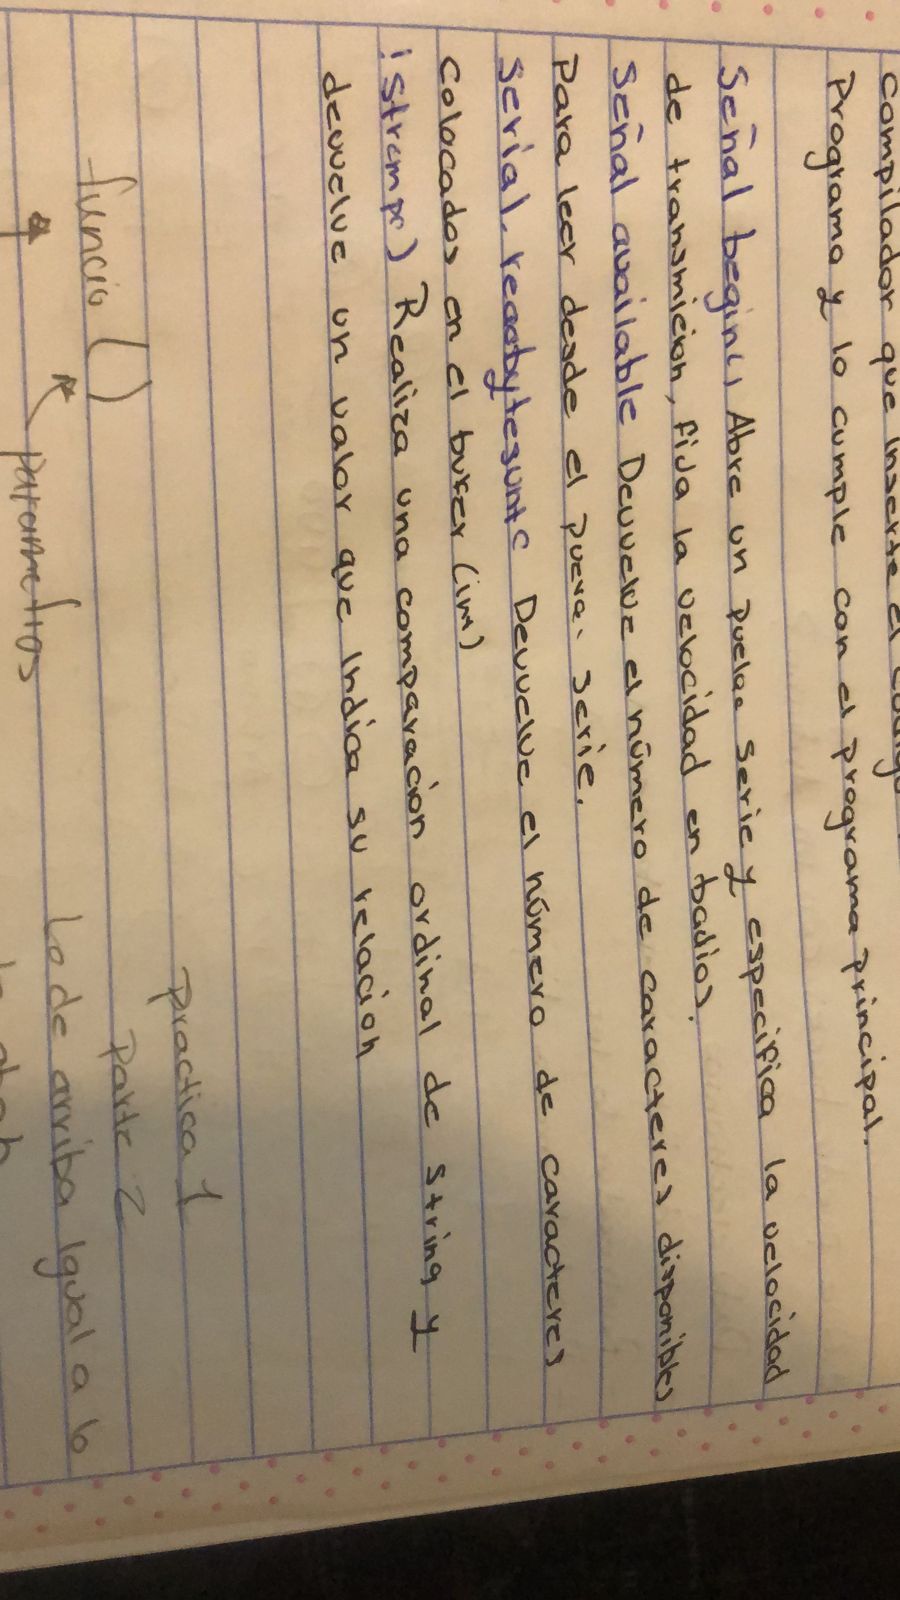 compilador que inserte el codigo
Programa y lo cumple con el programa principal.
Señal begin(s) Abre un puerto serie y especifica la velocidad
de transmicion, fija la velocidad en badios.
Señal available Devuelve el número de caracteres disponibles
Para leer desde el puerto serie.
Serial. readbytesunt c Devuelve el número de caracteres
Colocados en el bufer (im)
!Strcmpr) Realiza una comparación ordinal de string y
devuelve un valor que indica su relacion
Practica 1
Parte 2
funcio ( )
Lo de arriba Igual a lo
Parametros